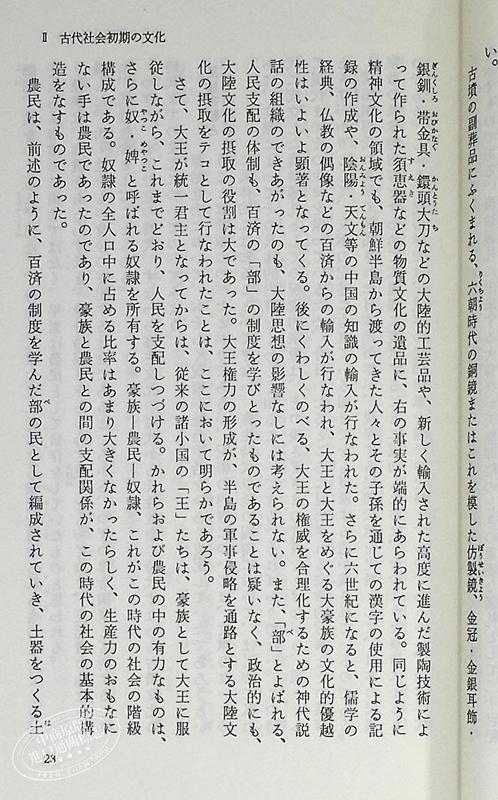 Ⅱ　古代社会初期の文化
い。
古墳の副葬品にふくまれる、六朝時代の銅鏡またはこれを模した仿製鏡、金冠・金銀耳飾・
銀釧・帯金具・鐶頭大刀などの大陸的工芸品や、新しく輸入された高度に進んだ製陶技術によ
って作られた須恵器などの物質文化の遺品に、右の事実が端的にあらわれている。同じように
精神文化の領域でも、朝鮮半島から渡ってきた人々とその子孫を通じての漢字の使用による記
録の作成や、陰陽・天文等の中国の知識の輸入が行なわれた。さらに六世紀になると、儒学の
経典、仏教の偶像などの百済からの輸入が行なわれ、大王と大王をめぐる大豪族の文化的優越
性はいよいよ顕著となってくる。後にくわしくのべる、大王の権威を合理化するための神代説
話の組織のできあがったのも、大陸思想の影響なしには考えられない。また、「部」とよばれる、
人民支配の体制も、百済の「部」の制度を学びとったものであることは疑いなく、政治的にも、
大陸文化の摂取の役割は大であった。大王権力の形成が、半島の軍事侵略を通路とする大陸文
化の摂取をテコとして行なわれたことは、ここにおいて明らかであろう。
さて、大王が統一君主となってからは、従来の諸小国の「王」たちは、豪族として大王に服
従しながら、これまでどおり、人民を支配しつづける。かれらおよび農民の中の有力なものは、
さらに奴・婢と呼ばれる奴隷を所有する。豪族―農民―奴隷、これがこの時代の社会の階級
構成である。奴隷の全人口中に占める比率はあまり大きくなかったらしく、生産力のおもなに
ない手は農民であったのであり、豪族と農民との間の支配関係が、この時代の社会の基本的構
造をなすものであった。
農民は、前述のように、百済の制度を学んだ部の民として編成されていき、土器をつくる土
23